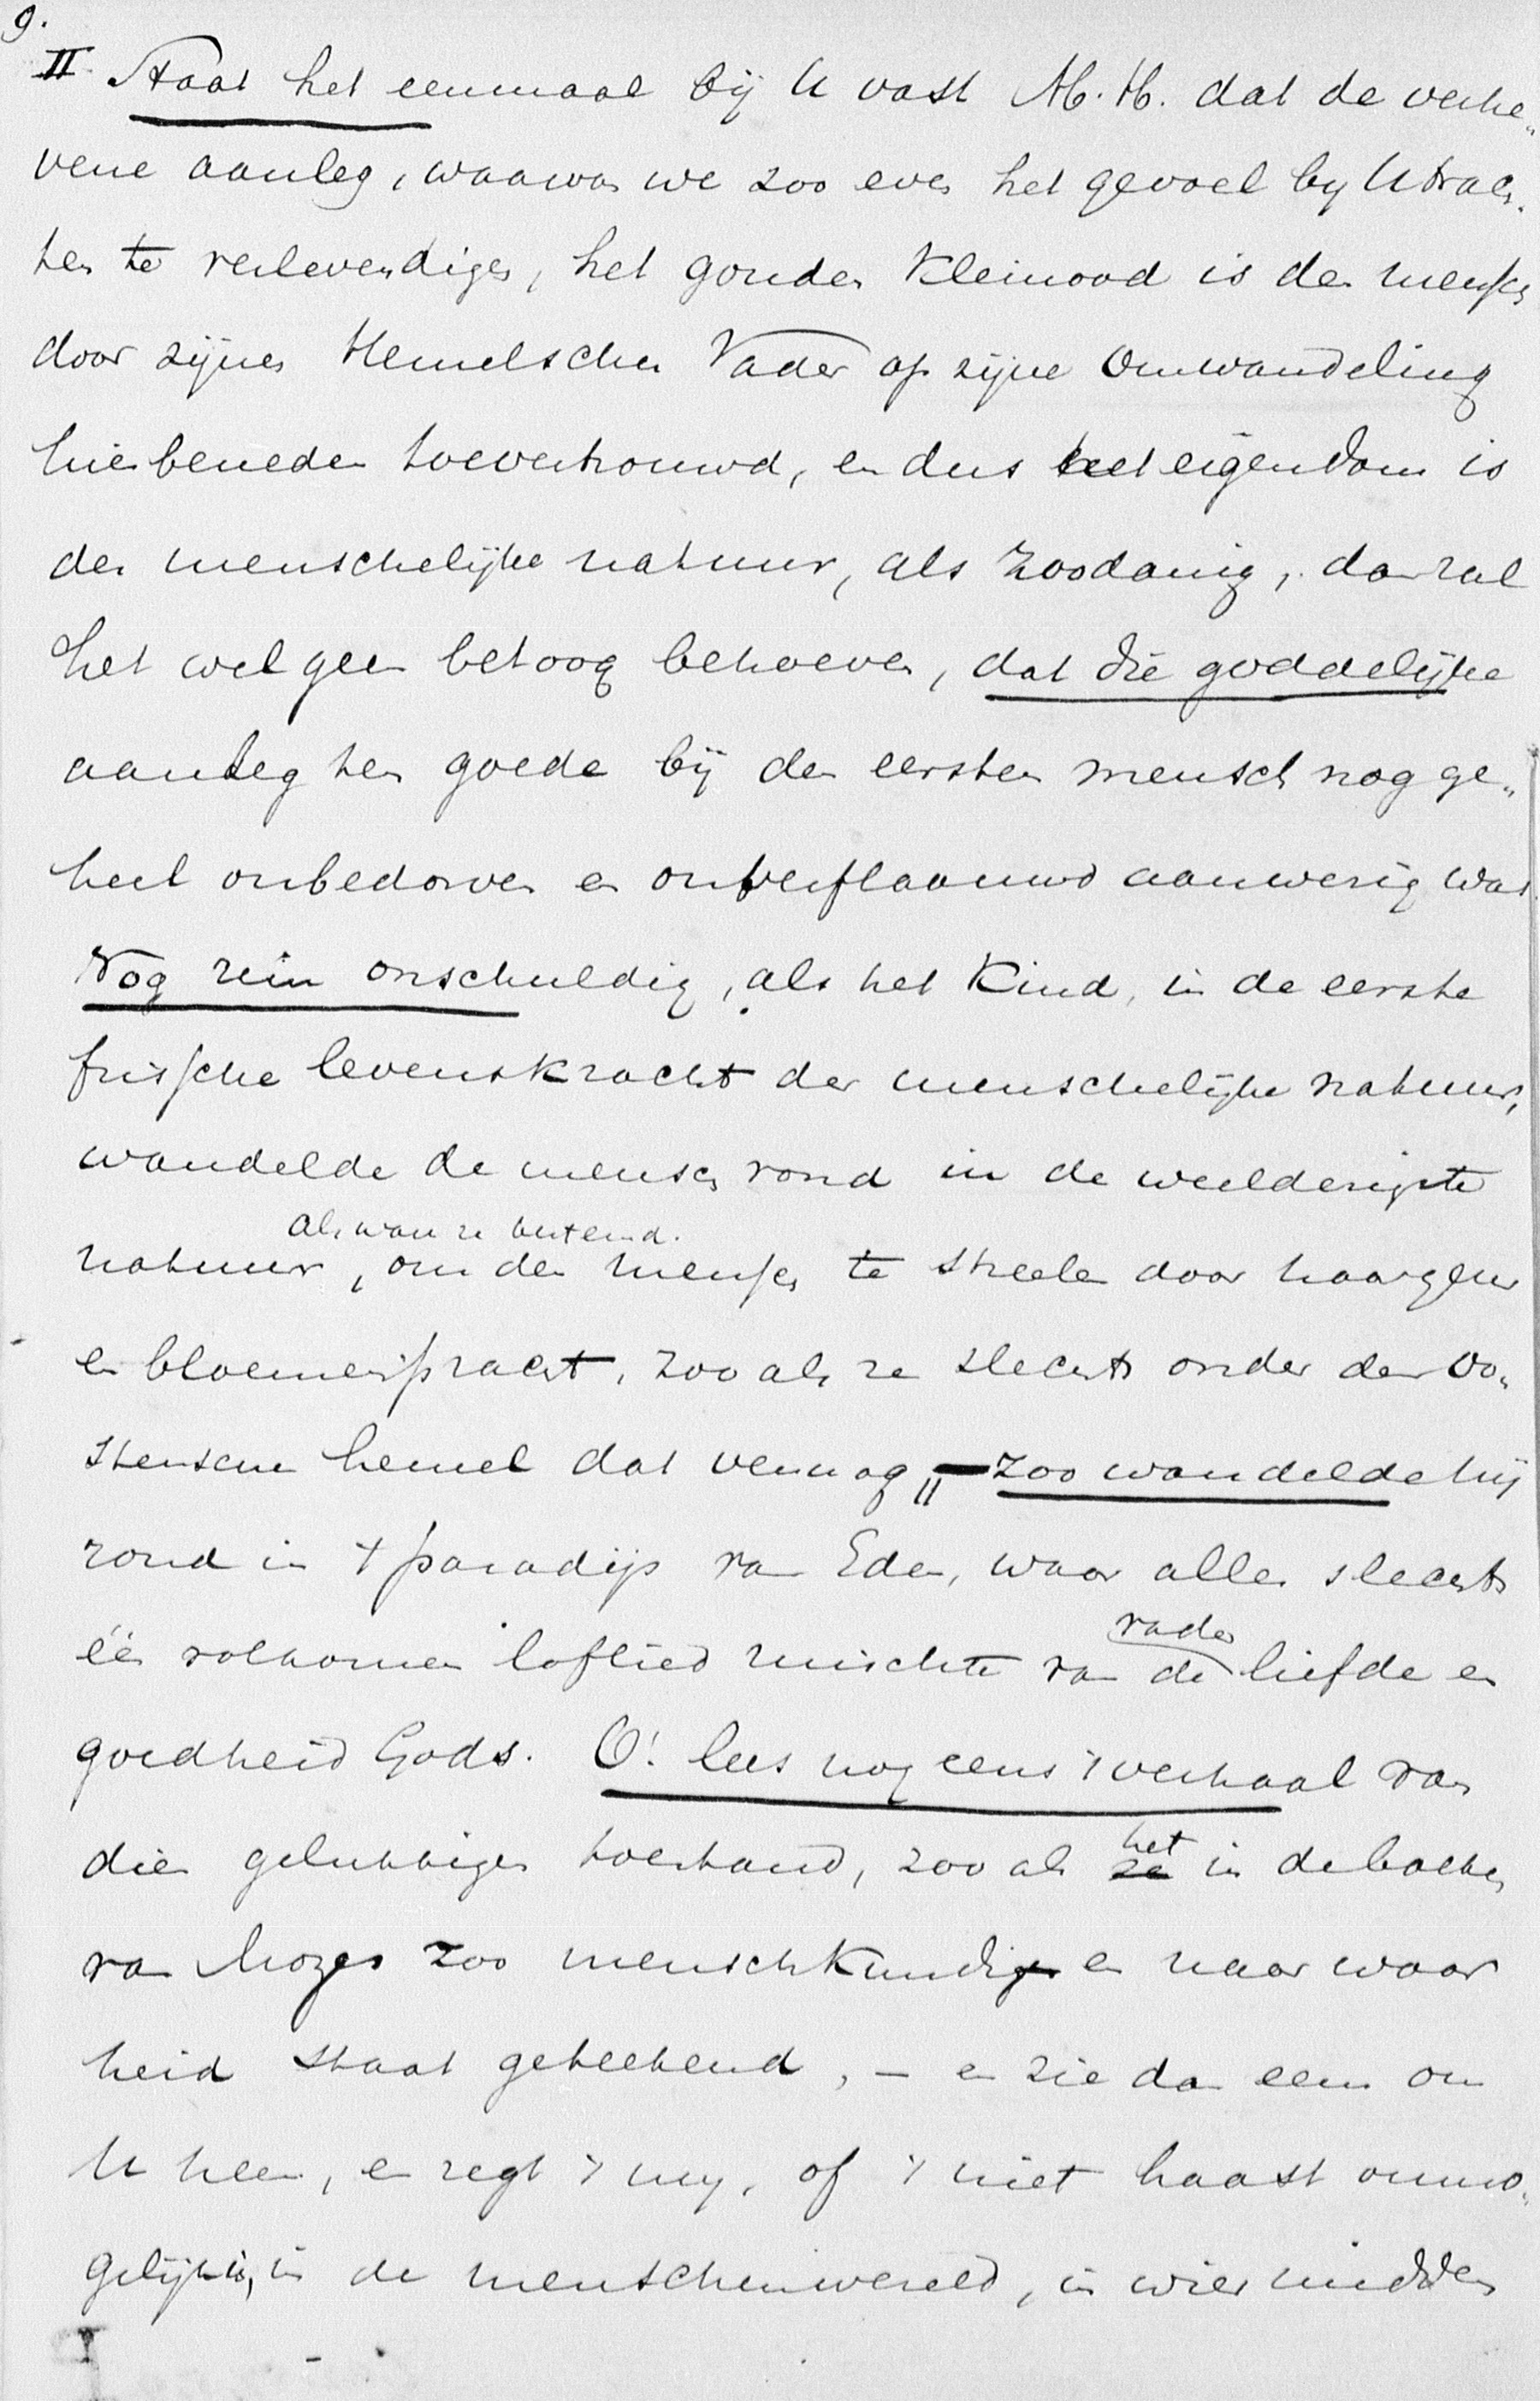 9.
II Staat het eenmaal bij U vast M. H. dat de verhe„
vene aanleg, waarvan we zoo even het gevoel by U trach„
ten te verlevendigen, het gouden Kleinood is den mensch
door zijnen Hemelschen Vader op zijne Omwandeling
hier beneden toevertrouwd, en dus het eigendom is
der menschelijke natuur, als zoodanig, dan zal
het wel geen betoog behoeven, dat die goddelijke
aanleg ten goede bij den eersten mensch nog ge„
heel onbedorven en onverflaauwd aanwezig was.
Nog rein onschuldig, als het Kind, in de eerste
frissche levenskracht der menschelijke natuur,
wandelde de mensch rond in de weelderigste
als ware ze bestemd.
natuur, om den mensch te streelen door haar geur
en bloemenpracht, zoo als ze slechts onder den Oo„
sterschen hemel dat vermag „ zoo wandelde hij
rond in 't paradijs van Eden, waar alles slechts
één volkomen loflied ruischte van de vader liefde en
goedheid Gods. O! lees nog eens 't verhaal van
dien gelukkigen toestand, zoo als het in de boeken
van Mozes zoo menschkundig en naar waar
heid staat geteekend, – en zie dan eens om
U heen, en zegt 't my, of 't niet haast onmo„
gelijk is, in de menschenwereld, in wier midden